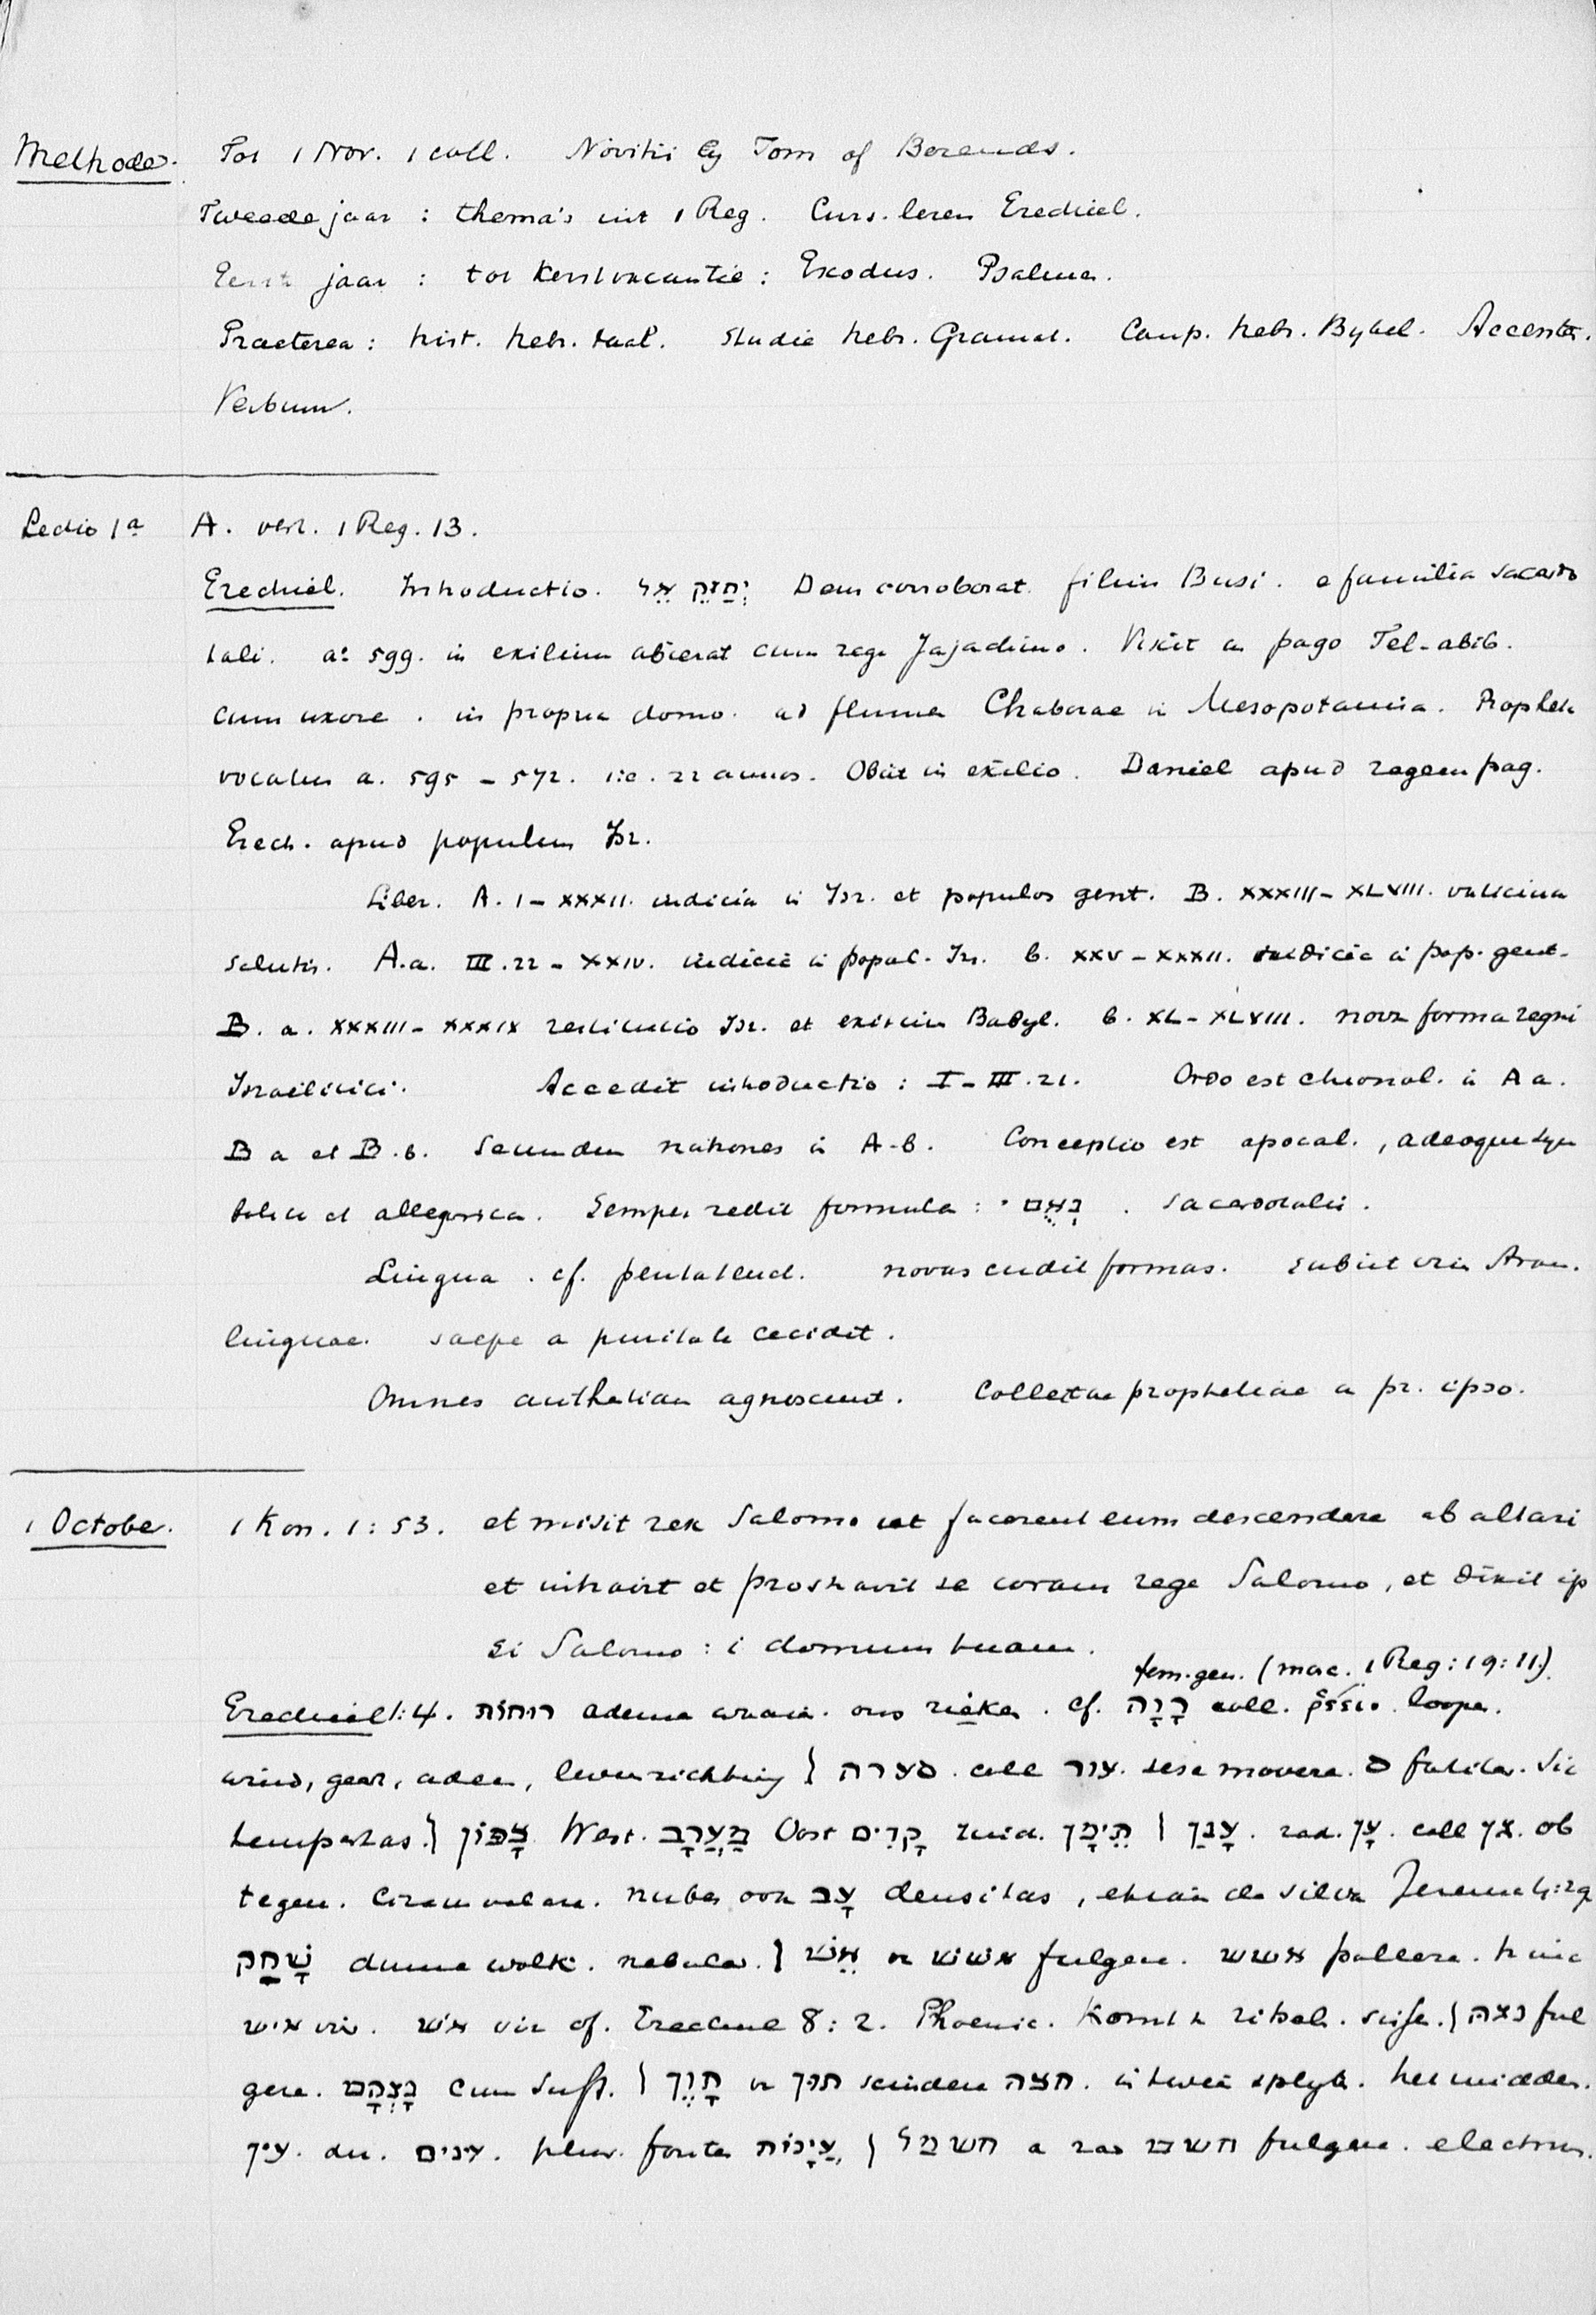 Methode. Tot 1 Nov. 1 coll. Novitii by Tom of Berends.
Tweede jaar : thema's uit 1 Reg. Curs. leren Ezechiel.
Eerste jaar : tot Kerstvacantie : Exodus. Psalmen.
Praeterea : hist. hebr. taal. Studie hebr. Gramat. Comp. hebr. Bybel. Accenten.
Verbum.
Lectio 1a A. vert. 1 Reg. 13.
Ezechiel. Introductio. יְחַזֵק אֵל Deus corroborat. filius Busi. e familia sacerdo
tali. a° 599. in exilium abierat cum rege Jojachino. Vixit in pago Tel-abib.
cum uxore. in propria domo. ad flumen Chaborae in Mesopotamia. Propheta
vocatus a. 595 - 572. i.e. 22 annos. Obiit in exilio. Daniel apud regem pag.
Ezech. apud populum Isr.
Liber. A. I - XXXII. iudicia in Isr. et populos gent. B. XXXIII - XLVIII. vaticinia
salutis. A.a. III.22 - XXIV. iudicia in popul. Isr. b. XXV - XXXII. iudicia in pop. gent.
B. a. XXXIII - XXXIX restitutio Isr. et exitium Babyl. b. XL - XLVIII. nova forma regni
Israelitici. Accedit introductio : I - III.21. Ordo est chronol. in A a.
B a et B.b. Secundum nationes in A-b. Conceptio est apocal., adeoque sym
bolica et allegorica. Semper redit formula : נְאֻם י . sacerdotalis.
Lingua. cf. pentateuch. novas cudit formas. subiit vim Aram.
linguae. saepe a puritate cecidit.
Omnes authentiam agnoscunt. Collectae prophetiae a pr. ipso.
1 October. 1 Kon. 1 : 53. et misit rex Salomo ut facerent eum descendere ab altari
et intravit et prostravit se coram rege Salomo, et dixit ip
si Salomo : i domum tuam.
fem. gen. (masc. 1 Reg : 19 : 11.)
Ezechiel 1:4. רוחות ademen waaien. ons rieken. cf. רָוָה coll. loopen.
wind, geest, adem, levensrichting } סערה. coll עור. sese movere. ס futilis. Sic
tempestas. } צָפוֹן West. מַעֲרָב Oost קָדִים zuid. תֵּימָן | עָנַן. rad. עָן. coll גן. ob
tegen. circumvolare. nubes ook עָב densitas, etiam de silva Jeremia 4:29
שָׁחַק dunne wolk. nebula. } אֵשׁ v אשש fulgere. אשש pallere. hinc
איש vir. אש vir cf. Ezechiel 8 : 2. Phoenic. Komt n ritsel. } נצה ful
gere. cum Suff. } תָּוֶךְ v תוך scindere חצה. in twee splyten. het midden.
עין. du. עינים. plur. fontes עֲיָנוֹת } חשמל a rad חשם fulgere. electrum.